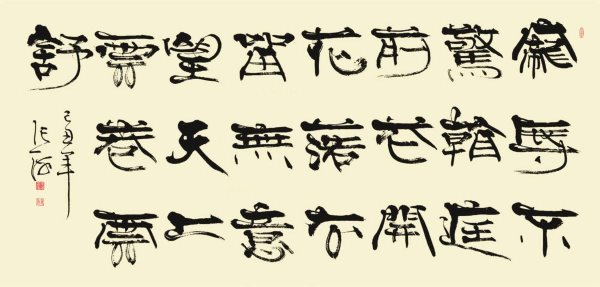 寵辱不
驚看庭
前花開
花落去
留無意
望天上
雲卷雲
舒
己丑年
张海